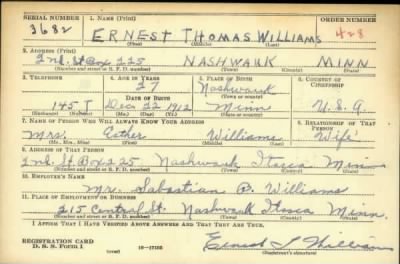 SERIAL NUMBER 1. NAME (Print) ORDER NUMBER
3682 ERNEST THOMAS WILLIAMS 428
(First) (Middle) (Last)
2. ADDRESS (Print)
2nd. St Box 225 NASHWAUK MINN
(Number and street or R. F. D. number) (Town) (County) (State)
3. TELEPHONE 4. AGE IN YEARS 5. PLACE OF BIRTH 6. COUNTRY OF CITIZENSHIP
27 Nashwauk
DATE OF BIRTH (Town or county)
145 J Dec 22 1912 Minn U.S.A.
(Exchange) (Number) (Mo.) (Day) (Yr.) (State or country)
7. NAME OF PERSON WHO WILL ALWAYS KNOW YOUR ADDRESS 8. RELATIONSHIP OF THAT PERSON
Mrs. Esther Williams Wife
(Mr., Mrs., Miss) (First) (Middle) (Last)
9. ADDRESS OF THAT PERSON
2nd. St Box 225 Nashwauk Itasca Minn
(Number and street or R. F. D. number) (Town) (County) (State)
10. EMPLOYER'S NAME
Mr. Sabastian P. Williams
11. PLACE OF EMPLOYMENT OR BUSINESS
215 Central St. Nashwauk Itasca Minn.
(Number and street or R. F. D. number) (Town) (County) (State)
I AFFIRM THAT I HAVE VERIFIED ABOVE ANSWERS AND THAT THEY ARE TRUE.
REGISTRATION CARD
D. S. S. FORM 1 16—17105 Ernest T Williams
(Registrant's signature)